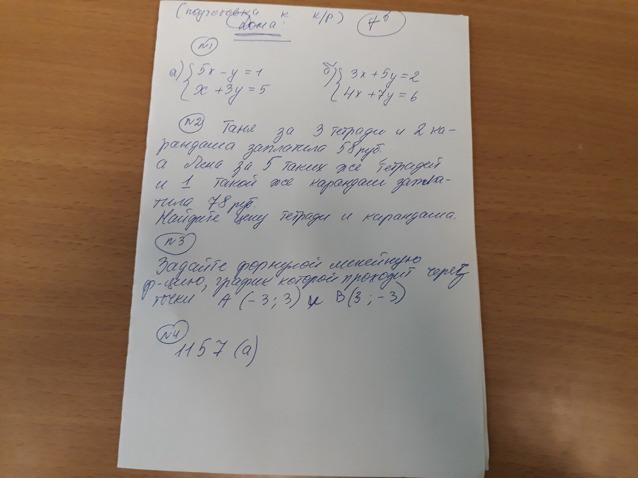 (подготовка к к/р)
дома:
7б
№1
а) { 5x - y = 1
{ x + 3y = 5
б) { 3x + 5y = 2
{ 4x + 7y = 6
№2 Таня за 3 тетради и 2 ка-
рандаша заплатила 58 руб.
а Лена за 5 таких же тетрадей
и 1 такой же карандаш запла-
тила 78 руб.
Найдите цену тетради и карандаша.
№3
Задайте формулой линейную
ф-цию, график которой проходит через
точки A (-3; 3) и B(3; -3)
№4
1157 (а)